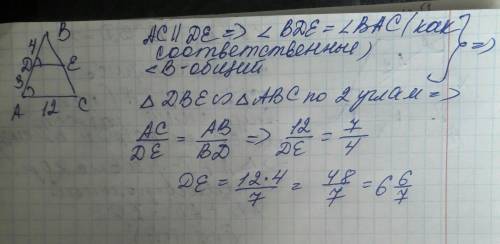 B
4
D
E
3
A
12
C
AC || DE => ∠BDE = ∠BAC (как
соответственные)
∠B-общий
} =>
△ DBE ∽ △ ABC по 2 углам =>
AC/DE = AB/BD => 12/DE = 7/4
DE = 12·4/7 = 48/7 = 6 6/7